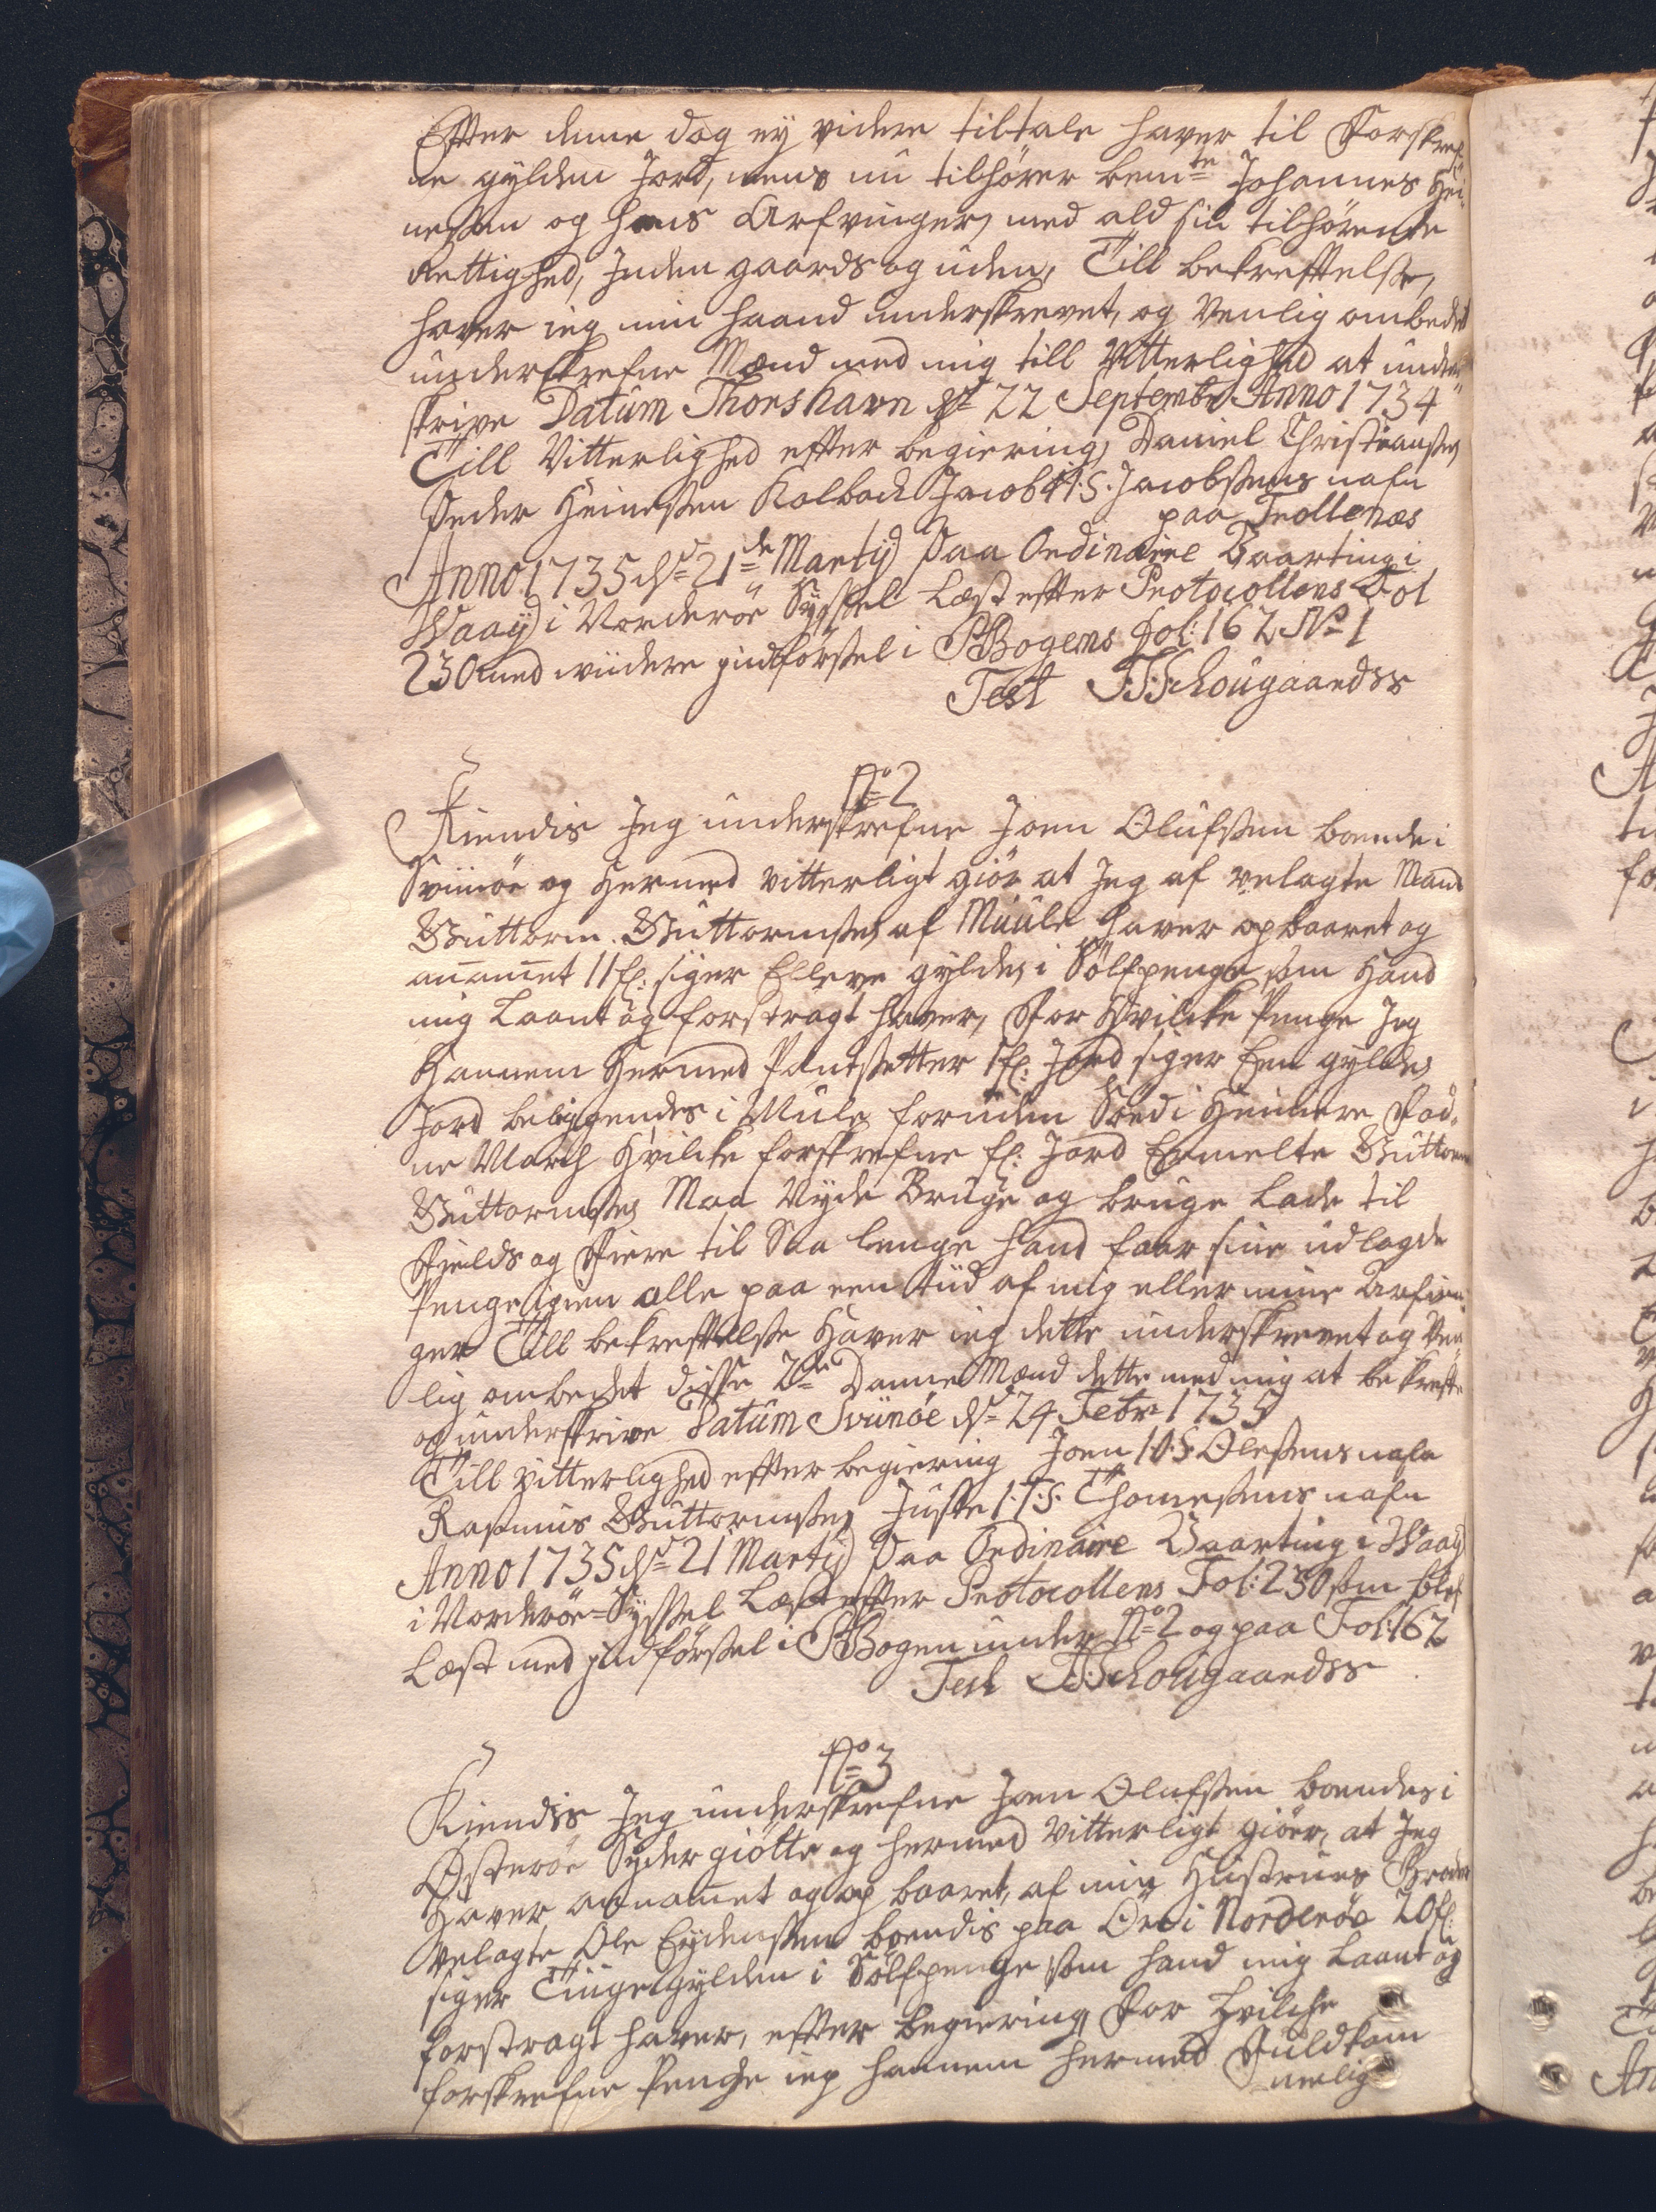 Efter denne dag ey videre tiltale haver til Forskref-
ne gylden Jord, mens nu tilhører bemte Johannes Hei-
neßen og hans Arfvinger, med ald sin tilhørende
Rettighed, Jnden gaards og uden, Till bekreftelse,
haver ieg min haand underskrevet, og Venlig ombedet
underskrefne Mænd med mig till Vitterlighed at under-
skrive Datum Thorshavn d: 22 Septembr Anno 1734
Till Vitterlighed efter begiering, Daniel Christianßen
Peder Heineßen Kalbach Jacob I.S. Jacobßens nafn
paa Trollenæs
Anno 1735 d: 21de Martij Paa Ordinaire Vaarting i
Waag i Norderøe Syßel Læst efter Protocollens Fol
230 med widere jndførßel i PBogens Fol: 162 No 1
Test JSchougaardss
No 2
Kiendis Jeg underskrefne Joen Olufßen boende i
Sviinøe og Hermed vitterligt giør at Jeg af velagte Mand
Guttorm Guttormßen af Muule haver opbaaret og
anammet 11 fl: siger Elleve gylden i Sölfpenge som Hand
mig Laant og forstragt haver, For Hvilcke Penge Jeg
Hannem Hermed Pantsetter 1 fl: Jord siger Een gylden
Jord beliggendes i Mule foruden Söed i Heimere Fød-
ne March Hvilcke forskrefne fl: Jord Ermelte Guttorm
Guttormßen Maa Nyde Bruge og bruge Lade til
Fields og Fiere til Saa lenge hand faar sine udlagde
Penge igien alle paa een tiid af mig eller mine Arfvin-
ger Till bekreftelße Haver ieg dette underskrevet og Ven-
lig ombedet diße 2de Danne Mænd dette med mig at bekrefte
og underskrive Datum Sviinöe d: 24 Febr 1735
Till vitterlighed efter begiering Joen I.O.S. Oleßens nafn
Rasmus Guttormßen Juste I.T.S. Thomeßens nafn
Anno 1735 d: 21 Martij Paa Ordinaire Vaarting i Waag
i Norderøe-Syßel Læst efter Protocollens Fol: 230 som blef
Læst med jndførßel i PBogen under No 2 og paa Fol: 162
Test JSchougaardss
No 3
Kiendis Jeg underskrefne Joen Olufßen boendes i
Østerøe Syder giötte og hermed vitterligt giöer, at Jeg
Haver annammet og op baaret, af min Hustrues Broder
velagte Ole Eydenßen boendis paa Öre i Norderöe 20 fl:
siger Tiuge gylden i Sölfpenge som hand mig Laant og
forstragt haver, efter begiering For hvilche
forskrefne Penge ieg hannem hermed Fuldkom
merlig